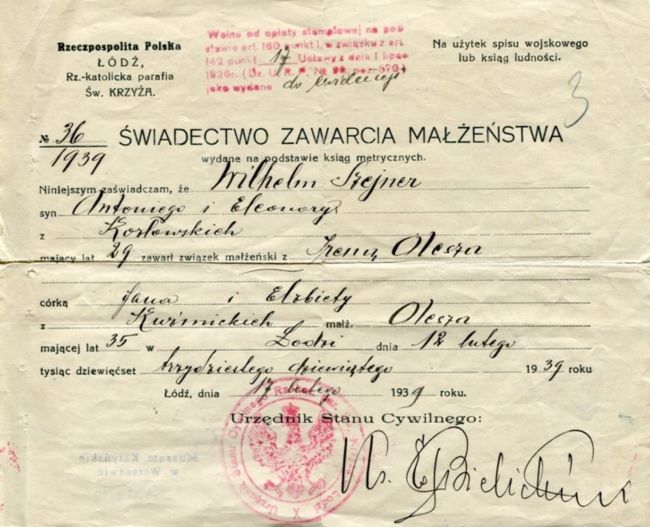 Rzeczpospolita Polska
ŁÓDŹ,
Rz.-katolicka parafia
Św. KRZYŻA.
Wolne od opłaty stemplowej na pod
stawie art. 160 punkt I, w związku z art.
142 punkt 17 Ustawy z dnia 1 lipca
1926r. (Dz. U. R. P. Nr 98, poz. 570)
jako wydane do ewidencji
Na użytek spisu wojskowego
lub ksiąg ludności.
3
№ 36
1939
ŚWIADECTWO ZAWARCIA MAŁŻEŃSTWA
wydane na podstawie ksiąg metrycznych.
Niniejszym zaświadczam, że Wilhelm Szejner
syn Antoniego i Eleonory
z Kozłowskich
mający lat 29 zawarł związek małżeński z Ireną Olesza
córką Jana i Elżbiety
z Kuźmickich małż. Olesza
mającej lat 35 w Łodzi dnia 12 lutego
tysiąc dziewięćset trzydziestego dziewiątego 1939 roku
Łódź, dnia 17 lutego 1939 roku.
Urzędnik Stanu Cywilnego:
Ks.
Muzeum Katyńskie
w Warszawie